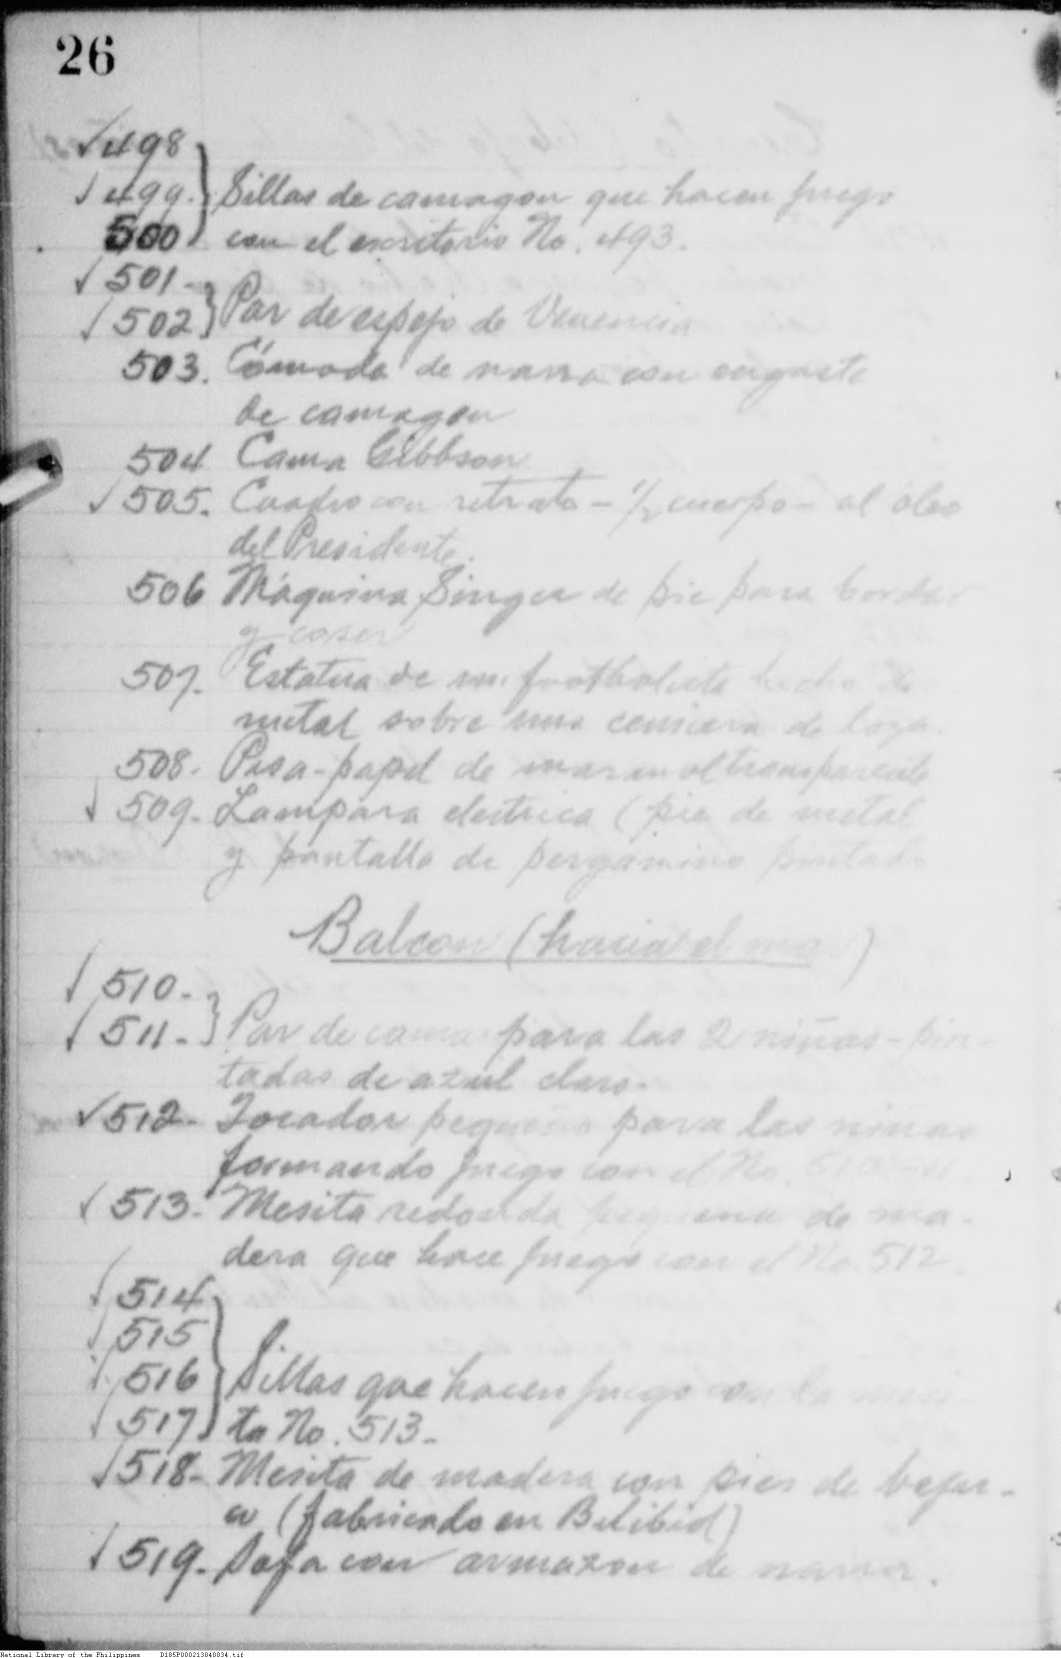 26
✓ 498
✓ 499. } Sillas de camagon que hacen juego
500 con el escritorio No. 493.
✓ 501-
✓ 502 } Par de espejo de Venencia
503. Cómoda de narra con engaste
de camagon
504 Cama Gibbson
✓ 505. Cuadro con retrato - 1/2 cuerpo - al óleo
del Presidente.
506 Máquina Singer de pie para bordar
y coser
507. Estatua de un footbolista hecho de
metal sobre una cenicera de loza.
508. Pisa-papel de marmol transparente
✓ 509. Lampara electrica (pie de metal
y pantalla de pergamino pintado
Balcon (hacia el mar)
✓ 510-
✓ 511- } Par de cama para las 2 niñas - pin-
tadas de azul claro.
✓ 512- Tocador pequeño para las niñas
formando juego con el No.
✓ 513- Mesita redonda pequena de ma-
dera que hace juego con el No. 512.
✓ 514
✓ 515
✓ 516 } Sillas que hacen juego con la mesi-
✓ 517 ta No. 513-
✓ 518- Mesita de madera con pies de
(fabricado en Bilibid)
✓ 519- Sofa con armazon de narra.
National Library of the Philippines D185P000213840834.tif